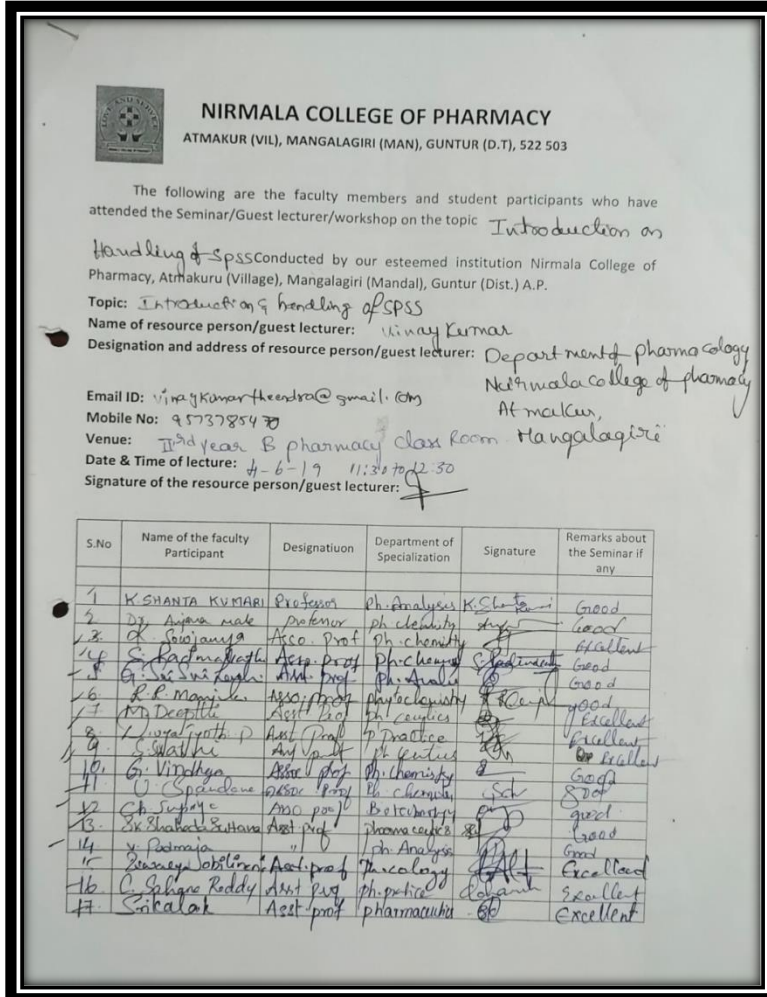 LOVE AND SERVICE
NIRMALA COLLEGE OF PHARMACY
ATMAKUR (VIL), MANGALAGIRI (MAN), GUNTUR (D.T), 522 503
The following are the faculty members and student participants who have
attended the Seminar/Guest lecturer/workshop on the topic Introduction on
Handling of SPSS Conducted by our esteemed institution Nirmala College of
Pharmacy, Atmakuru (Village), Mangalagiri (Mandal), Guntur (Dist.) A.P.
Topic: Introduction & handling of SPSS
Name of resource person/guest lecturer: Vinay Kumar
Designation and address of resource person/guest lecturer: Department of pharmacology
Nirmala college of pharmacy
Email ID: vinaykumartheendra@gmail.com
Atmakur,
Mobile No: 95737854
Venue: year B pharmacy Class Room Mangalagiri
Date & Time of lecture: 4-6-19 11:30 to 12:30
Signature of the resource person/guest lecturer:
S.No Name of the faculty Participant Designatiuon Department of Specialization Signature Remarks about the Seminar if any
1 K. SHANTA KUMARI Professor Ph. Analysis K. Shanta Good
2 professor ph chemistry Good
3 Asco. Prof Ph. chemistry Excellent
4 S. Asso. prof Ph. Good
5 G. Asst. prof Ph. Good
6 Asso. prof phytochemistry good
7 M. Deepthi Asst prof ph ceutics Excellent
8 P Asst Prof P Practice Excellent
9 S. Swathi prof Excellent
10. G. Vindhya Assoc prof Ph. chemistry Good
11 U. Spandana Assoc Prof Ph chemistry Good
12 Ch. Supriya Asso prof good
13 Sk Shaheda Sultana Asst prof pharmaceutics Good
14 V. Padmaja " ph. Analysis Good
15 Asst. prof Excellent
16 C. Sahana Reddy Asst prof ph. Excellent
17 Srikalah Asst. prof pharmaceutics Excellent